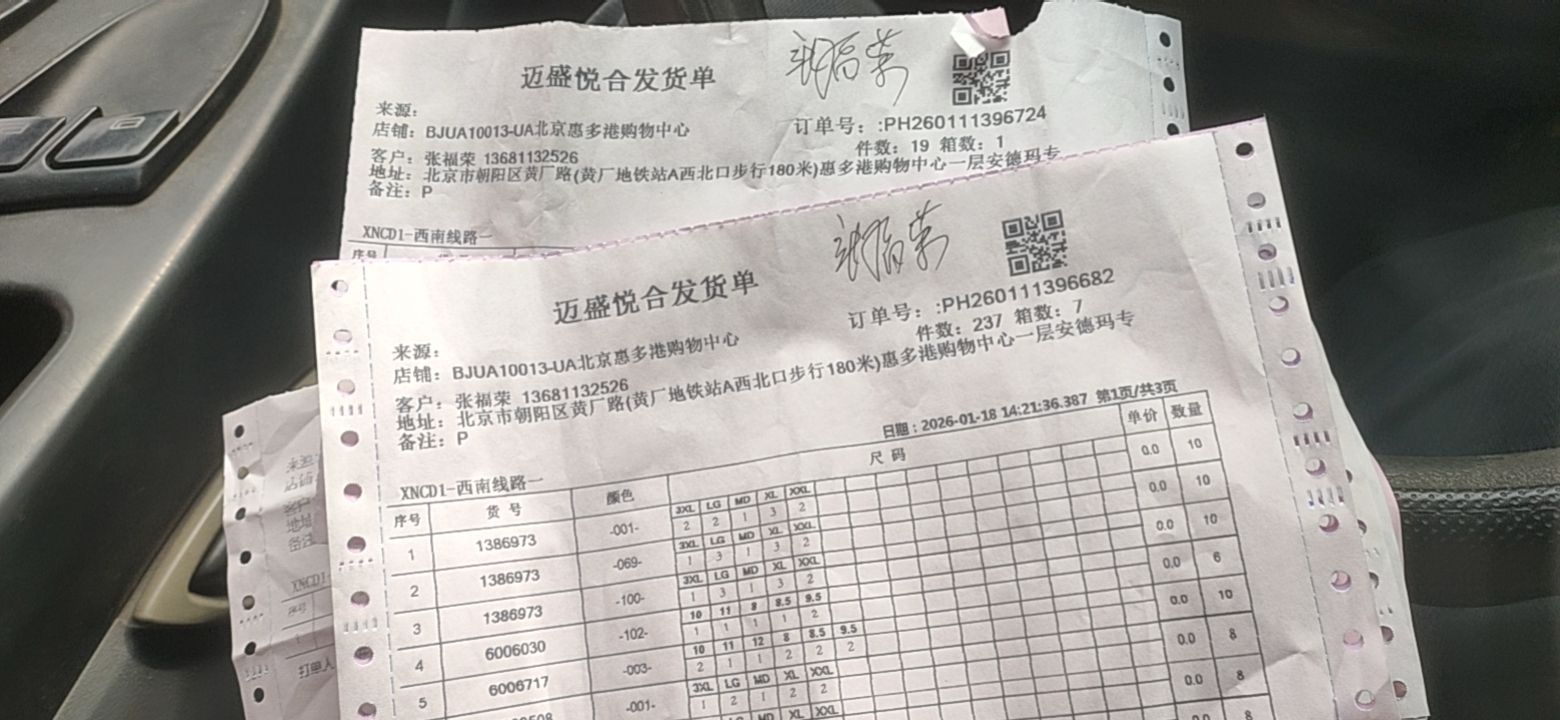 迈盛悦合发货单
张福荣
来源：
店铺：BJUA10013-UA北京惠多港购物中心
订单号：:PH260111396724
件数：19 箱数：1
客户：张福荣 13681132526
地址：北京市朝阳区黄厂路(黄厂地铁站A西北口步行180米)惠多港购物中心一层安德玛专
备注：P
XNCD1-西南线路一
序号
迈盛悦合发货单
张福荣
来源：
店铺：BJUA10013-UA北京惠多港购物中心
订单号：:PH260111396682
件数：237 箱数：7
客户：张福荣 13681132526
地址：北京市朝阳区黄厂路(黄厂地铁站A西北口步行180米)惠多港购物中心一层安德玛专
备注：P
日期：2026-01-18 14:21:36.387 第1页/共3页
XNCD1-西南线路一
序号 货号 颜色 尺码 单价 数量
3XL LG MD XL XXL
1 1386973 -001- 2 2 1 3 2 0.0 10
3XL LG MD XL XXL
2 1386973 -069- 1 3 1 3 2 0.0 10
3XL LG MD XL XXL
3 1386973 -100- 1 3 1 3 2 0.0 10
10 11 8 8.5 9.5
4 6006030 -102- 1 1 1 1 2 0.0 6
10 11 12 8 8.5 9.5
5 6006717 -003- 2 1 1 2 2 2 0.0 10
3XL LG MD XL XXL
-001- 1 2 1 2 2 0.0 8
LG MD XL XXL
0.0 8
0.0 8
来源：
店铺
客户
地址
备注
XNCD1-
序号
1
打单人